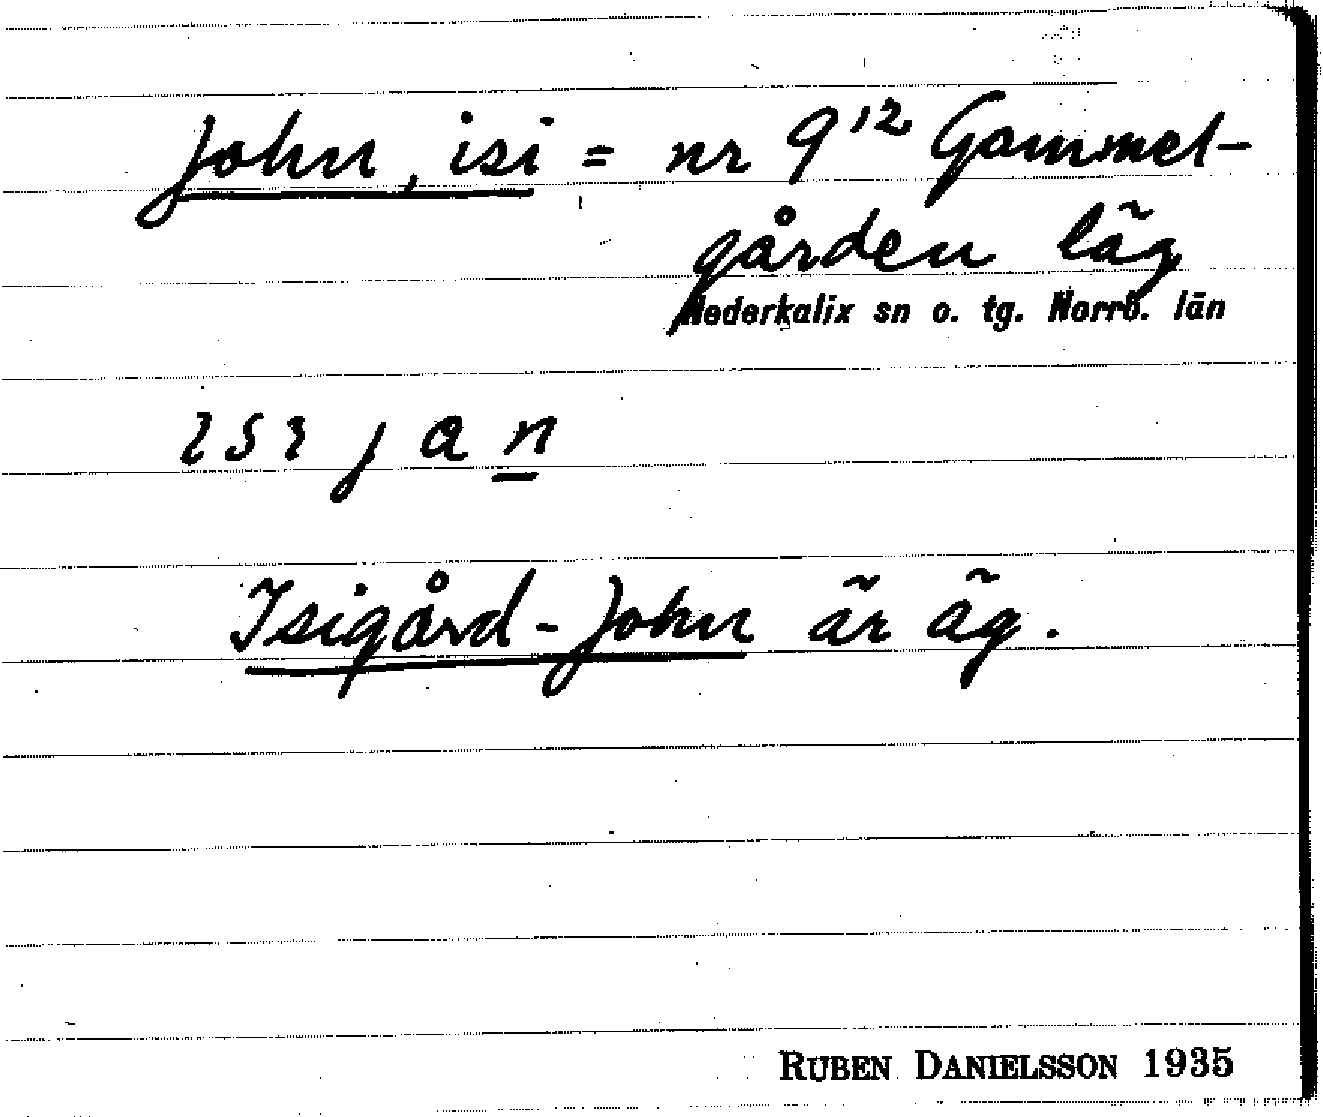 John, isi = nr 9¹² Gammel-
gården läg
Nederkalix sn o. tg. Norrb. län
ısı jan
Isigård-John är äg.
RUBEN DANIELSSON 1935